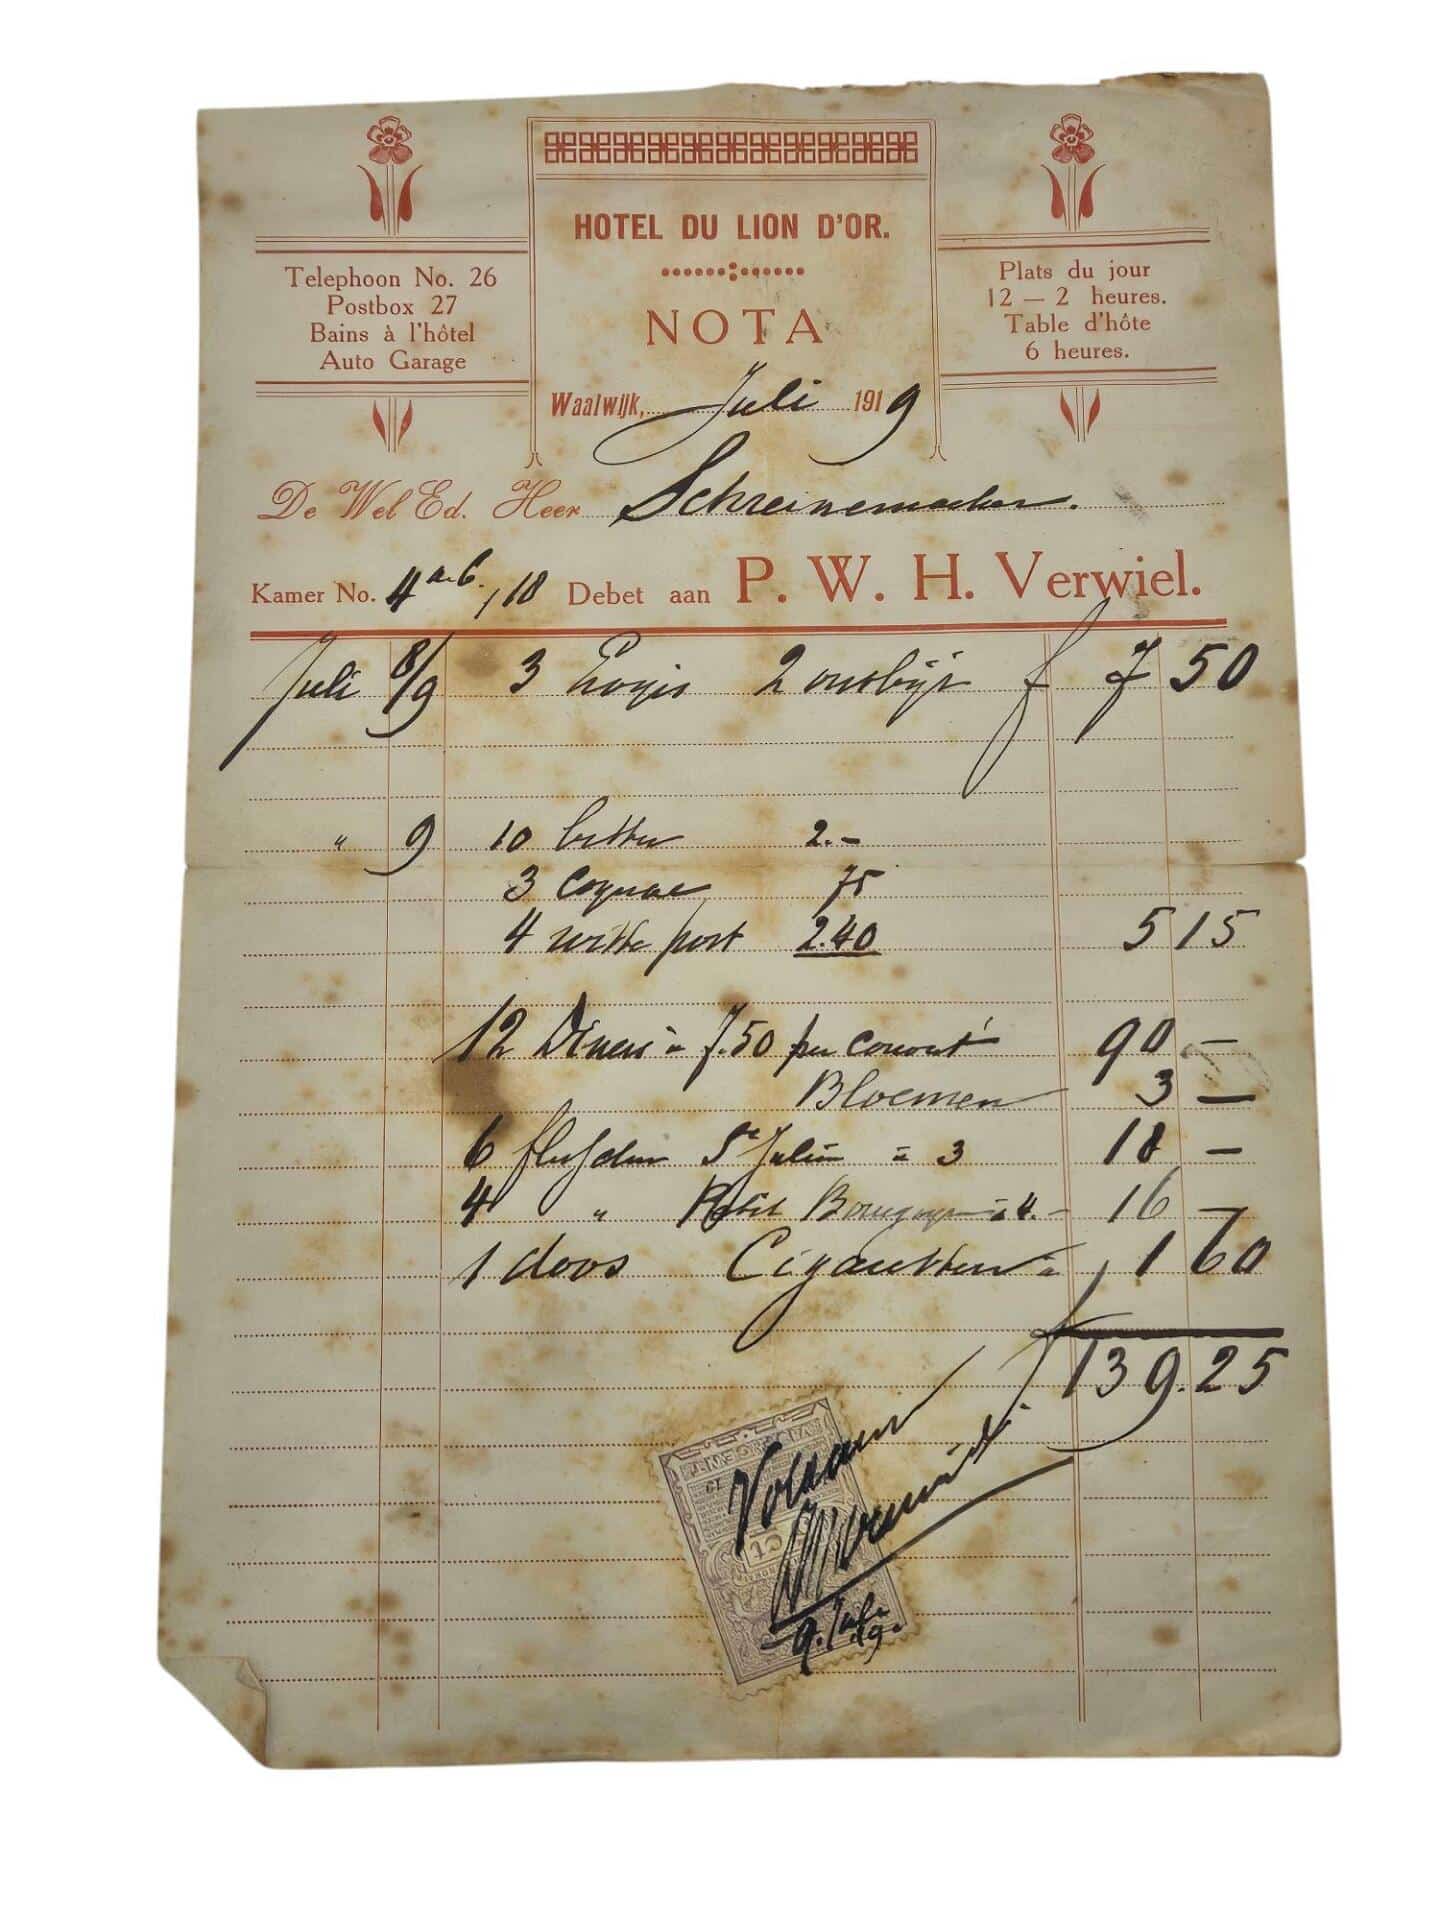 HOTEL DU LION D'OR.
NOTA
Telephoon No. 26
Postbox 27
Bains à l'hôtel
Auto Garage
Plats du jour
12 — 2 heures.
Table d'hôte
6 heures.
Waalwijk, Juli 1919
De Wel Ed. Heer Schreinemacher.
Kamer No. 4 a. 6. / 18 Debet aan P. W. H. Verwiel.
Juli 8/9 3 Logis 2 ontbijt f 7 50
" 9 10 bitter 2.-
3 Cognac 75
4 witte port 2.40 5 15
12 Diners à 7.50 per couvert 90 -
Bloemen 3 -
6 flesschen St Julien à 3 18 -
4 " Petit Bourgogne à 4.- 16 -
1 doos Cigaretten à 1 60
f 139.25
Voldaan
9. Juli 19.